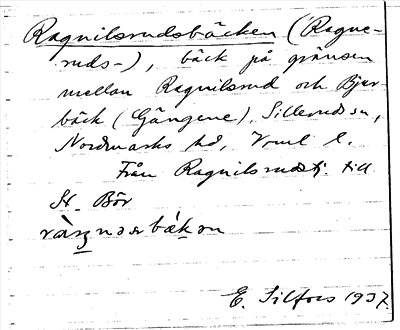 Ragnilsrudsbäcken (Ragne-
ruds-), bäck på gränsen
mellan Ragnilsrud och Bjur-
bäck (Gängene), Silleruds sn,
Nordmarks hd, Vrml l.
Från Ragnilsrudstj. till
St. Bör
E. Silfors 1937.